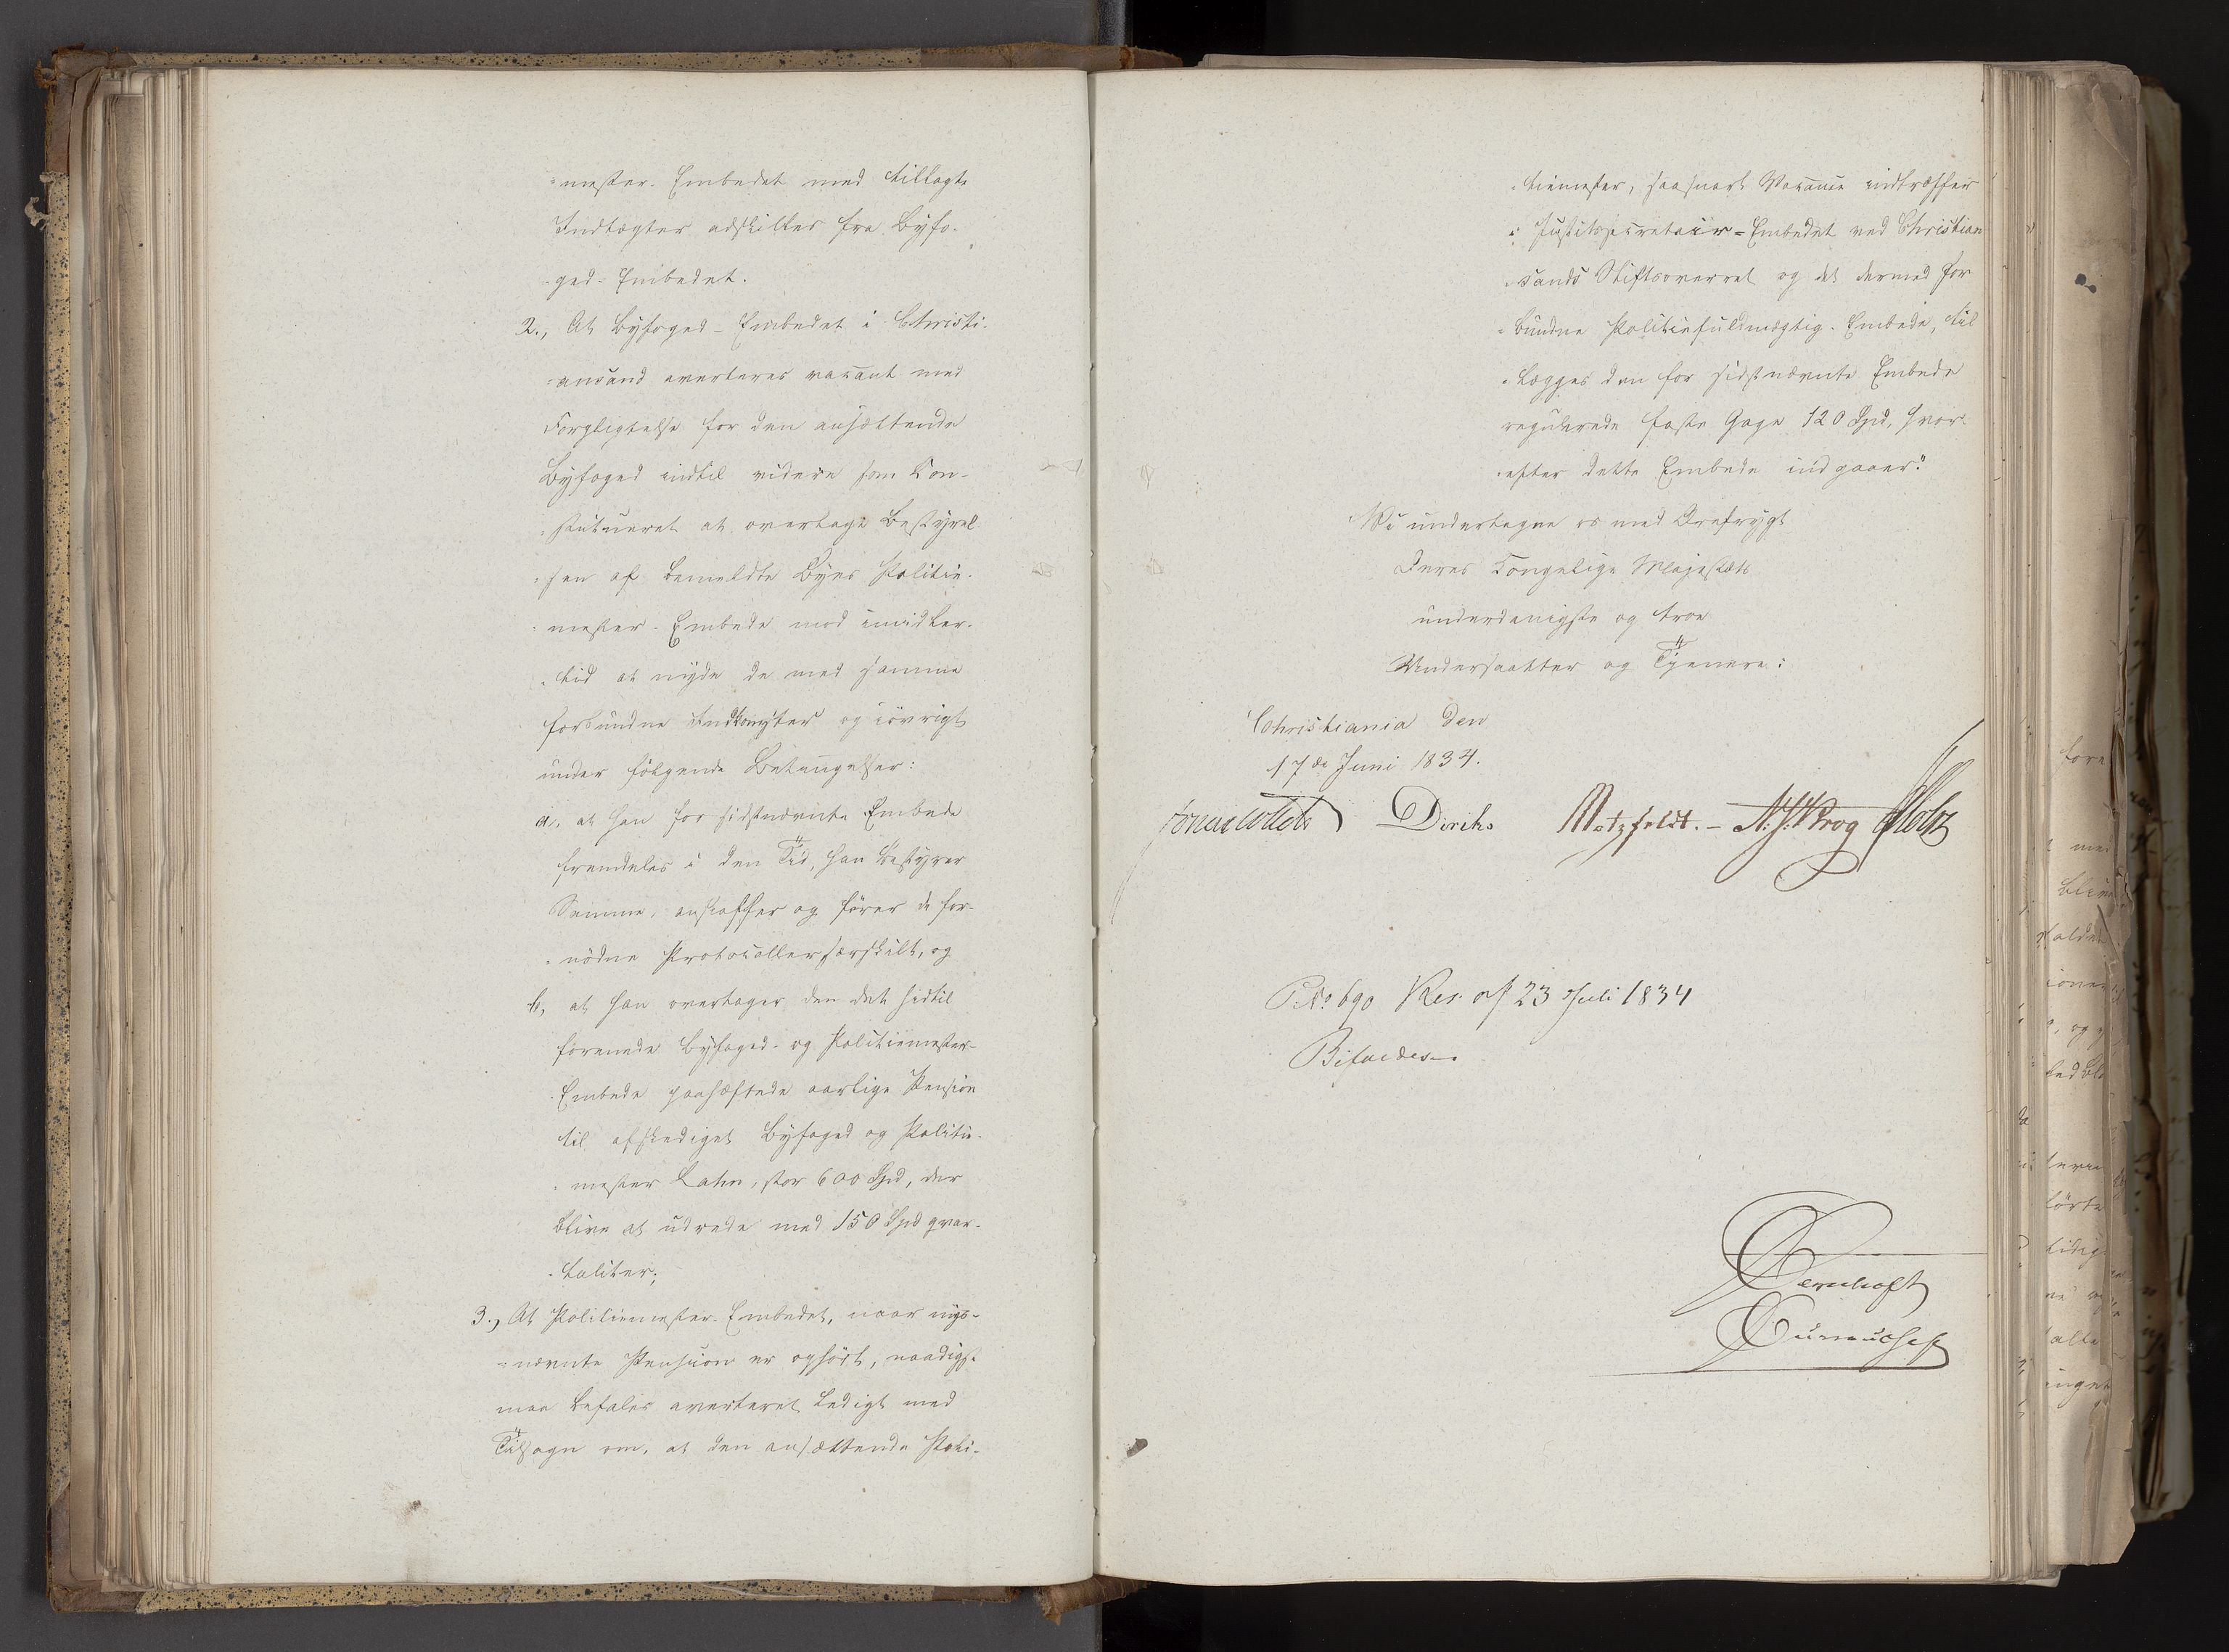 -mester-Embedet med tillagte
Indtægter adskilles fra Byfo-
-ged-Embedet.
2., At Byfoged-Embedet i Christi-
-ansand averteres vacant med
Forpligtelse for den ansættende
Byfoged indtil videre som Con-
-stitueret at overtage Bestyrel-
-sen af bemeldte Byes Politie-
-mester-Embede mod imidler-
-tid at nyde de med samme
forbundne Indkomster og iövrigt
under fölgende Betingelser:
a., at han for sidstnævnte Embede
fremdeles i den Tid, han bestyrer
Samme, anskaffer og förer de for-
-nödne Protocoller særskilt, og
b, at han overtager den det hidtil
forenede Byfoged- og Politiemester-
Embede paahæftede aarlige Pension
til afskediget Byfoged og Politie-
-mester Lahn, stor 600 Spd, der
blive at udrede med 150 Spd qvar-
-taliter;
3., At Politiemester-Embedet, naar nys-
-nævnte Pension er ophört, naadigst
maa befales averteret ledigt med
Tilsagn om, at den ansættende Poli-
-tiemester, saasnart Vacance indtræffer
i Justitssecretair-Embedet ved Christian
-sands Stiftsoverret og det dermed for
-bundne Politiefuldmægtig-Embede, til
-lægges den for sidstnævnte Embede
regulerede faste Gage 120 Spd, hvor-
-efter dette Embede indgaaer."
Vi undertegne os med Ærefrygt
Deres Kongelige Majestæts
underdanigste og troe
Undersaatter og Tjenere:
Christiania den
17de Juni 1834.
Jonas Collett Diriks Motzfeldt.- N. J. Krog Holst
P. No 690 Res. af 23 Juli 1834
Bifaldes.